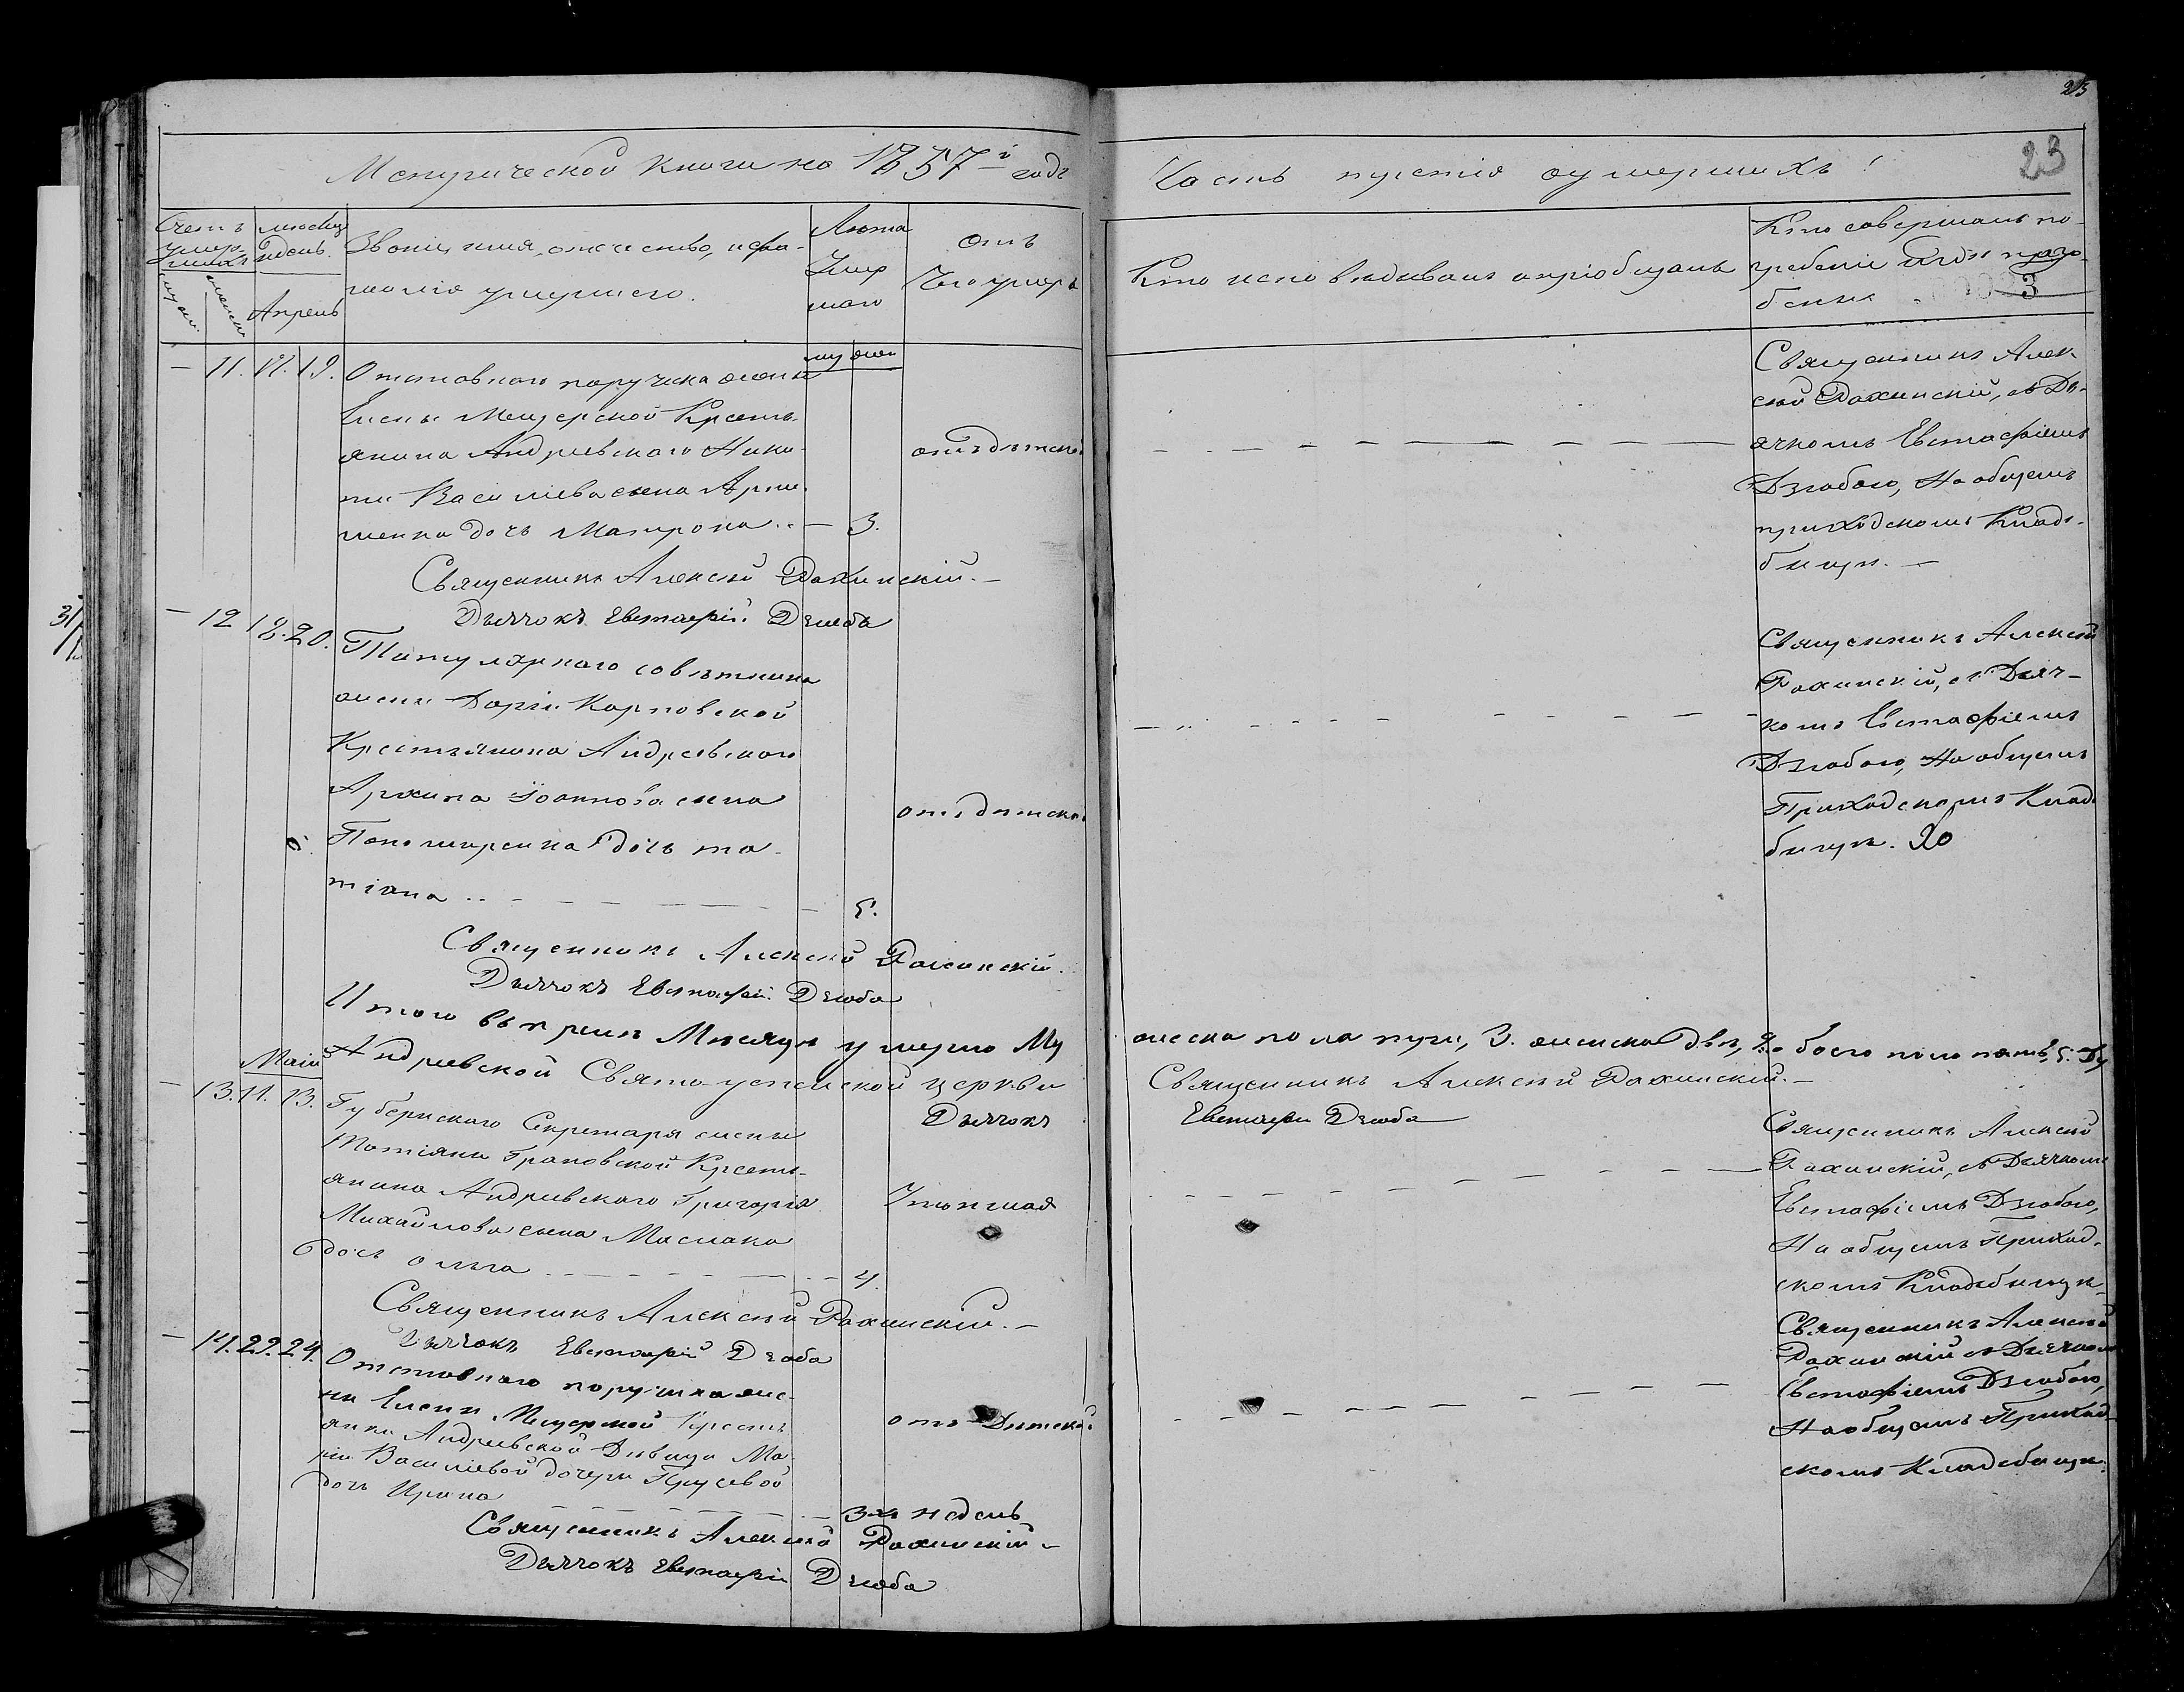 23
Метрической книги на 1857й годъ
Часть третія о умершихъ!
23
Счетъ умершихъ
мужеск.
женска
месяцъ и день.
Апрель
Званіе, имя, отчество, и фа-
милія умершего.
Лета
Умер
шаго
От
Чего умеръ
му жен
Кто исповедывалъ и пріобщалъ
Кто совершалъ по-
гребеніе и где погре-
бены
3
— 11. 17. 19. Отставного поручика жены
Елены Мещерской Крестъ-
янина Андреевского Ники-
ты Василіева сына Артю-
шенка дочь Матрона.. — 3.
отъ детской
Священникъ Алек
сей Рахинскій, съ Дь-
ячкомъ Евстафіемъ
Дзюбою, На общемъ
приходскомъ Кладъ-
бище. —
Священникъ Алексей Рахинскій. —
Дьячокъ Евстафій Дзюба
31/
— 12 18. 20. Титулярного советника
жены Даріи Карповской
Крестъянина Андреевского
Архипа Іоаннова сына
Пономаренка дочь та-
тіана .. — 5.
отъ детской
Священникъ Алексей
Рахинскій, съ Дьяч-
комъ Евстафіемъ
Дзюбою, На общемъ
Приходскомъ Клад
бище. 20
Священникъ Алексей Рахинскій.
Дьячокъ Евстафій Дзюба
Итого въ Апреле Месяце умерло Му
жеска пола три, 3. женска две, 2. обоего пола пять, 5. Ду
Андреевской Свято-успенской церкви
Священникъ Алексей Рахинскій. —
Дьячокъ
Евстафи Дзюба
Маій
— 13. 11. 13. Губернского Секретаря жены
Татіяны Граковской Крестъ-
янина Андреевского Григорія
Михайлова сына Маслака
дочь олга — 4.
Утопшая
Священникъ Алексей
Рахинскій, съ Дьячкомъ
Евстафіемъ Дзюбою,
На общемъ Приход-
скомъ Кладъбище
Священникъ Алексей Рахинскій. —
Дьячокъ Евстафій Дзюба
— 14. 22. 24. Отставного поручика же-
ны Елены Мещерской Крестъ
янки Андреевской Девицы Ма-
ріи Василіевой дочери Прусевой
дочь Ирина — 3-хъ недель
отъ Детской
Священникъ Алексей
Рахинскій съ Дьячкомъ
Евстафіемъ Дзюбою,
На общемъ Приход-
скомъ Кладебище
Священникъ Алексей Рахинскій —
Дьячокъ Евстафій Дзюба